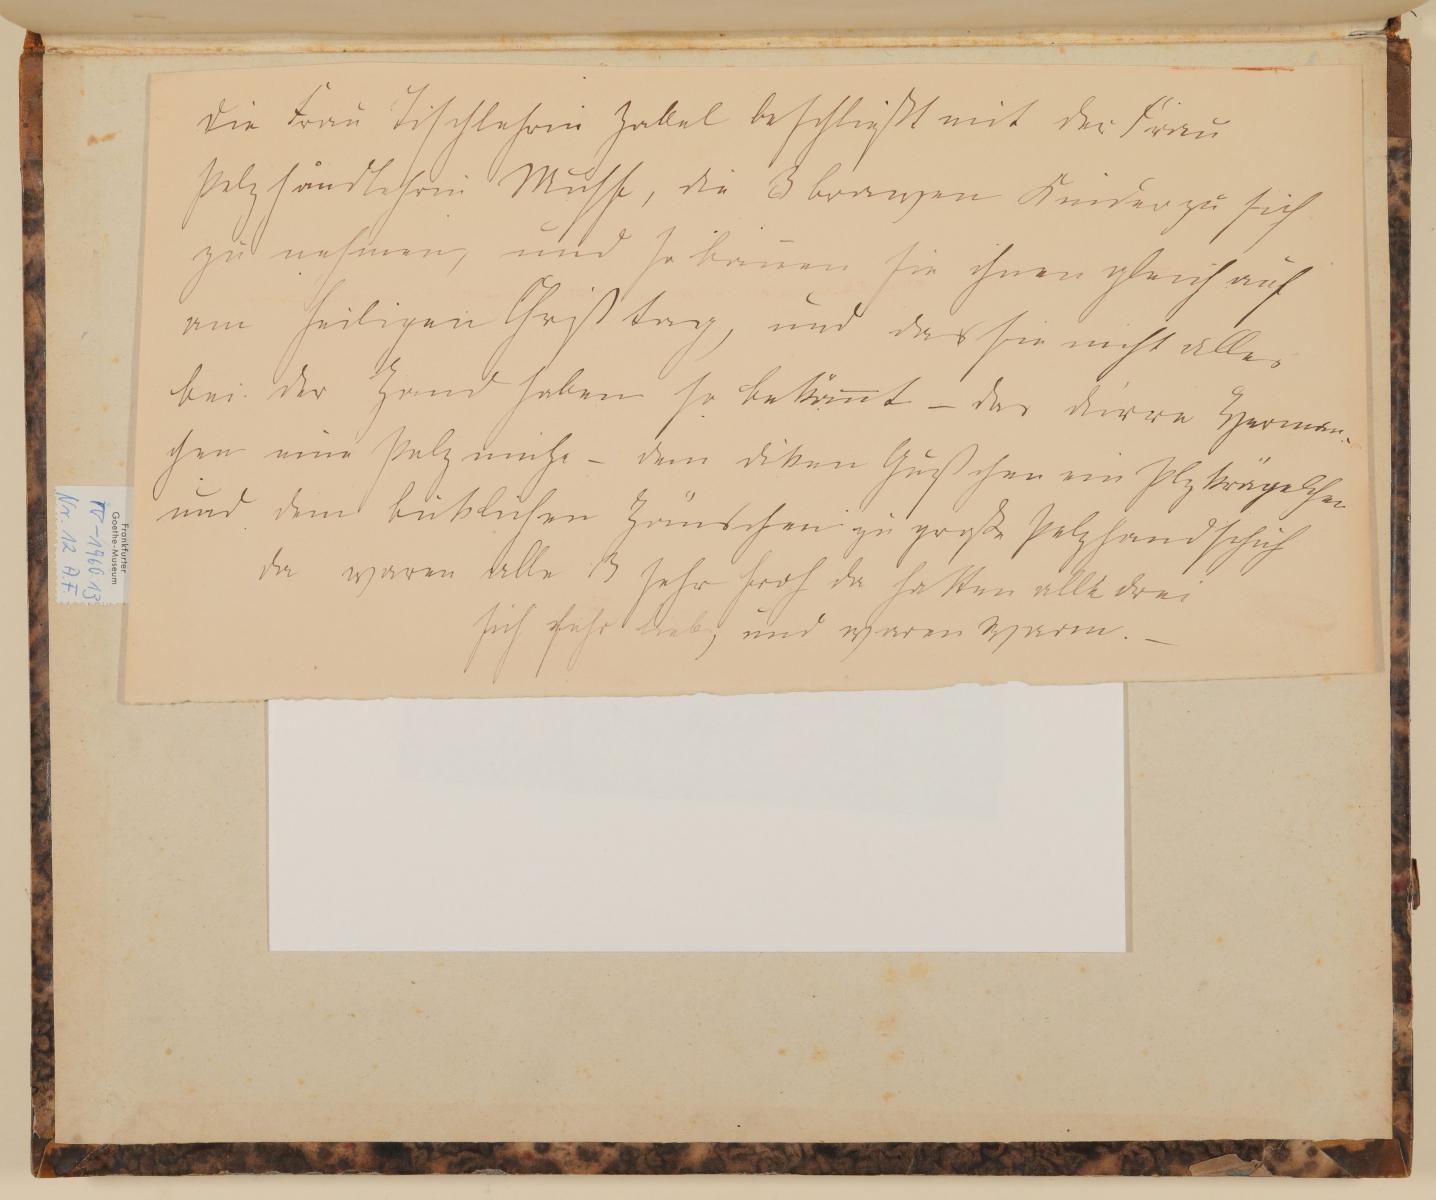 die Frau Tischlehrin Zabel beschließt mit der Frau
Pelzhändlehrin Muff, die 3 braven Kinder zu sich
zu nehmen, und so bauen sie ihnen gleich auf
am heiligen Christtag, und das sie nicht alles
bei der Hand haben so bekömt – das dürre Herman-
chen eine Pelzmütze – dem diken Gustchen ein Plzkrägelchen
und dem buklichen Hänschen zu große Pelzhandschuh
da waren alle 3 sehr froh da hatten alle drei
sich sehr lieb, und waren warm. –
Frankfurter
Goethe-Museum
IV-1960 13
Nr. 12 A.F.